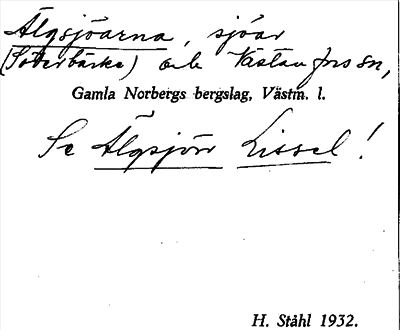 Älgsjöarna, sjöar
(Söderbärke) och Västanfors sn,
Gamla Norbergs bergslag, Västm. l.
Se Älgsjön Lissel!
H. Ståhl 1932.